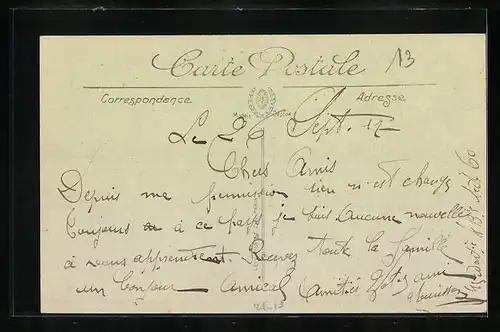 Carte Postale
13
Correspondence
Adresse
Le 26 Sept. 17
Chers Amis
Depuis ma permission rien n'est changé
toujours à ce pays je suis Aucune nouvelle
à vous apprendre. Recevez toute la famille
un bonjour Amical Amitiés Votre ami